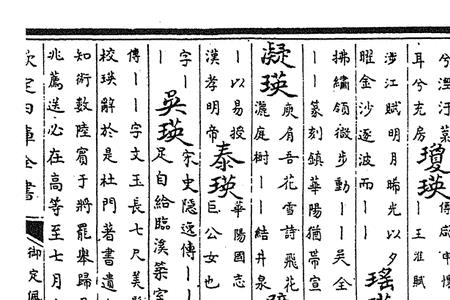 耳兮充房
瓊瑛
王淮賦
涉江賦明月晞光以夕
曜金沙逐波而丨丨
拂繡領微步動丨丨吳全
丨丨篆刻鎮華陽猶帶宣
凝瑛
庾肩吾花雪詩飛花
灑庭樹丨丨結井泉
丨以易授
漢孝明帝
泰瑛
華陽國志
巨公女也
字丨
吳瑛
宋史隱逸傳丨丨
足自給臨溪築室
傳丨丨字文玉長七尺美
校瑛解於是杜門著書遺
知術數陸賓于將罷舉歸
兆薦送必在高等至七月
欽定四庫全書
御定佩